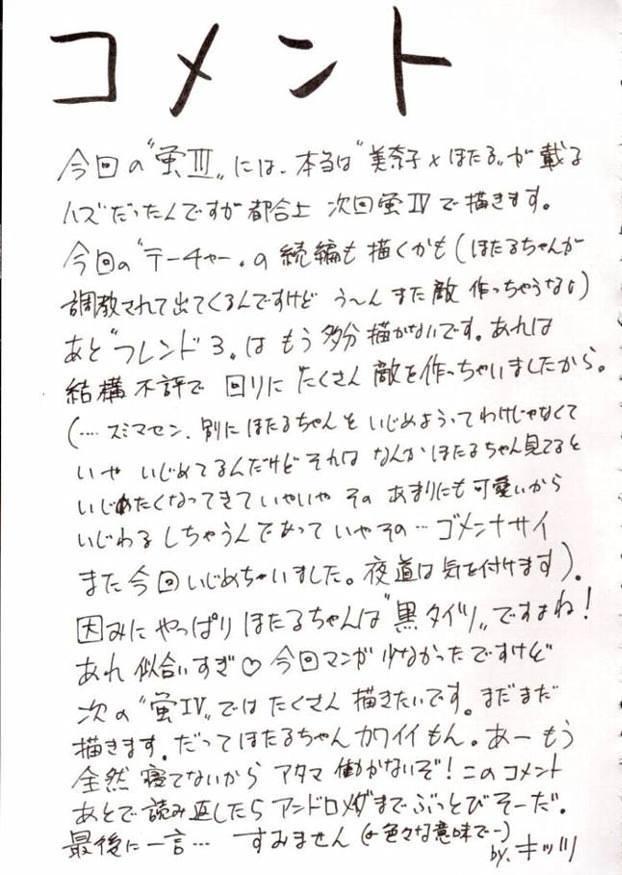 コメント
今回の〝蛍Ⅲ〟には、本当は〝美奈子×ほたる〟が載る
ハズだったんですが都合上 次回蛍Ⅳで描きます。
今回の〝テーチャー〟の続編も描くかも(ほたるちゃんが
調教されて出てくるんですけど う〜ん また敵 作っちゃうな。)
あと〝フレンド3〟は もう 多分描かないです。あれは
結構 不評で 回りに たくさん 敵を作っちゃいましたから。
(‥‥スミマセン、別にほたるちゃんを いじめようってわけじゃなくて
いや いじめてるんだけど それは なんか ほたるちゃん見てると
いじめたくなってきて いやいや その あまりにも可愛いから
いじわる しちゃうんであって いや その… ゴメンナサイ
また今回いじめちゃいました。夜道は気を付けます)。
因みに やっぱり ほたるちゃんは〝黒タイツ〟ですよね!
あれ 似合いすぎ♡ 今回マンガ 少なかったですけど
次の〝蛍Ⅳ〟では たくさん 描きたいです。まだまだ
描きます。だってほたるちゃんカワイイもん。あーもう
全然 寝てないから アタマ 働かないぞ!このコメント
あとで読み返したら アンドロメダまでぶっとびそーだ。
最後に一言… すみません(←色々な意味で-)
by. キッツ